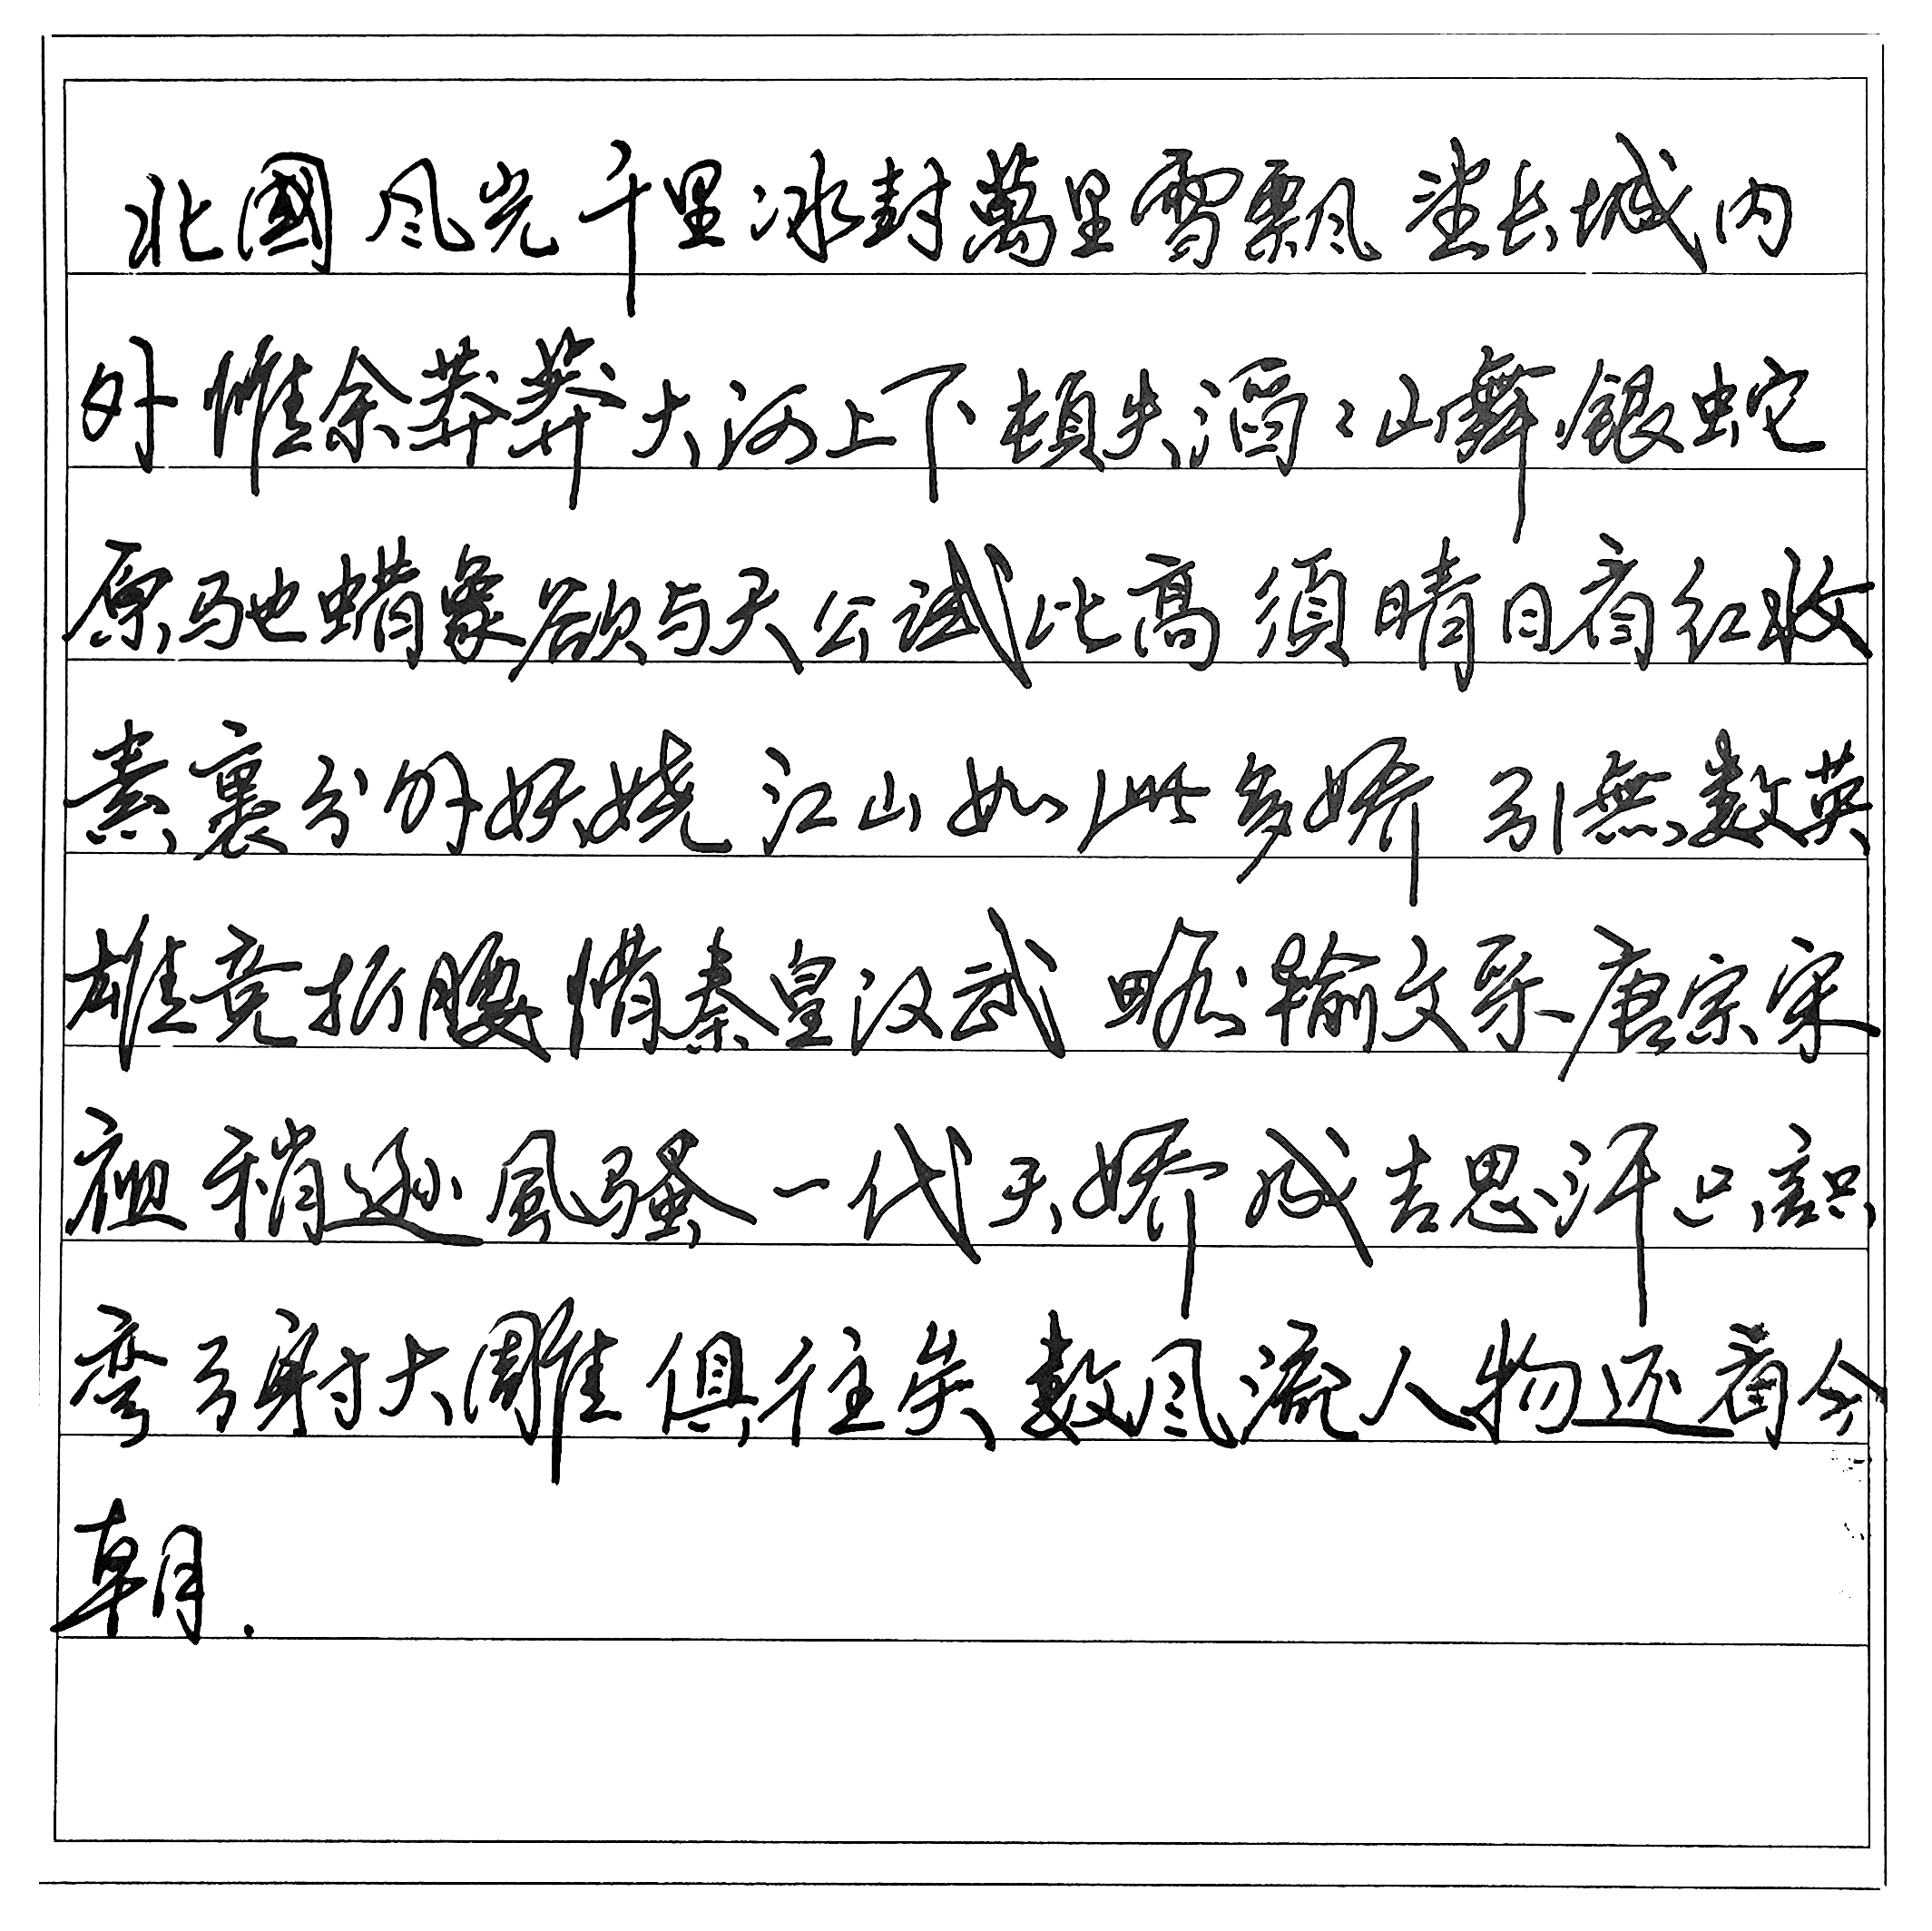 北國风光千里冰封萬里雪飘望长城内
外惟余莽莽大河上下頓失滔﹕山舞銀蛇
原驰蜡象欲与天公试比高須晴日看红收
素裹分外妖娆江山如此多娇引無数英
雄竞折腰惜秦皇汉武略输文采唐宗宋
祖稍逊風骚一代天娇成吉思汗只識
弯弓射大雕俱往矣数风流人物还看今
朝.